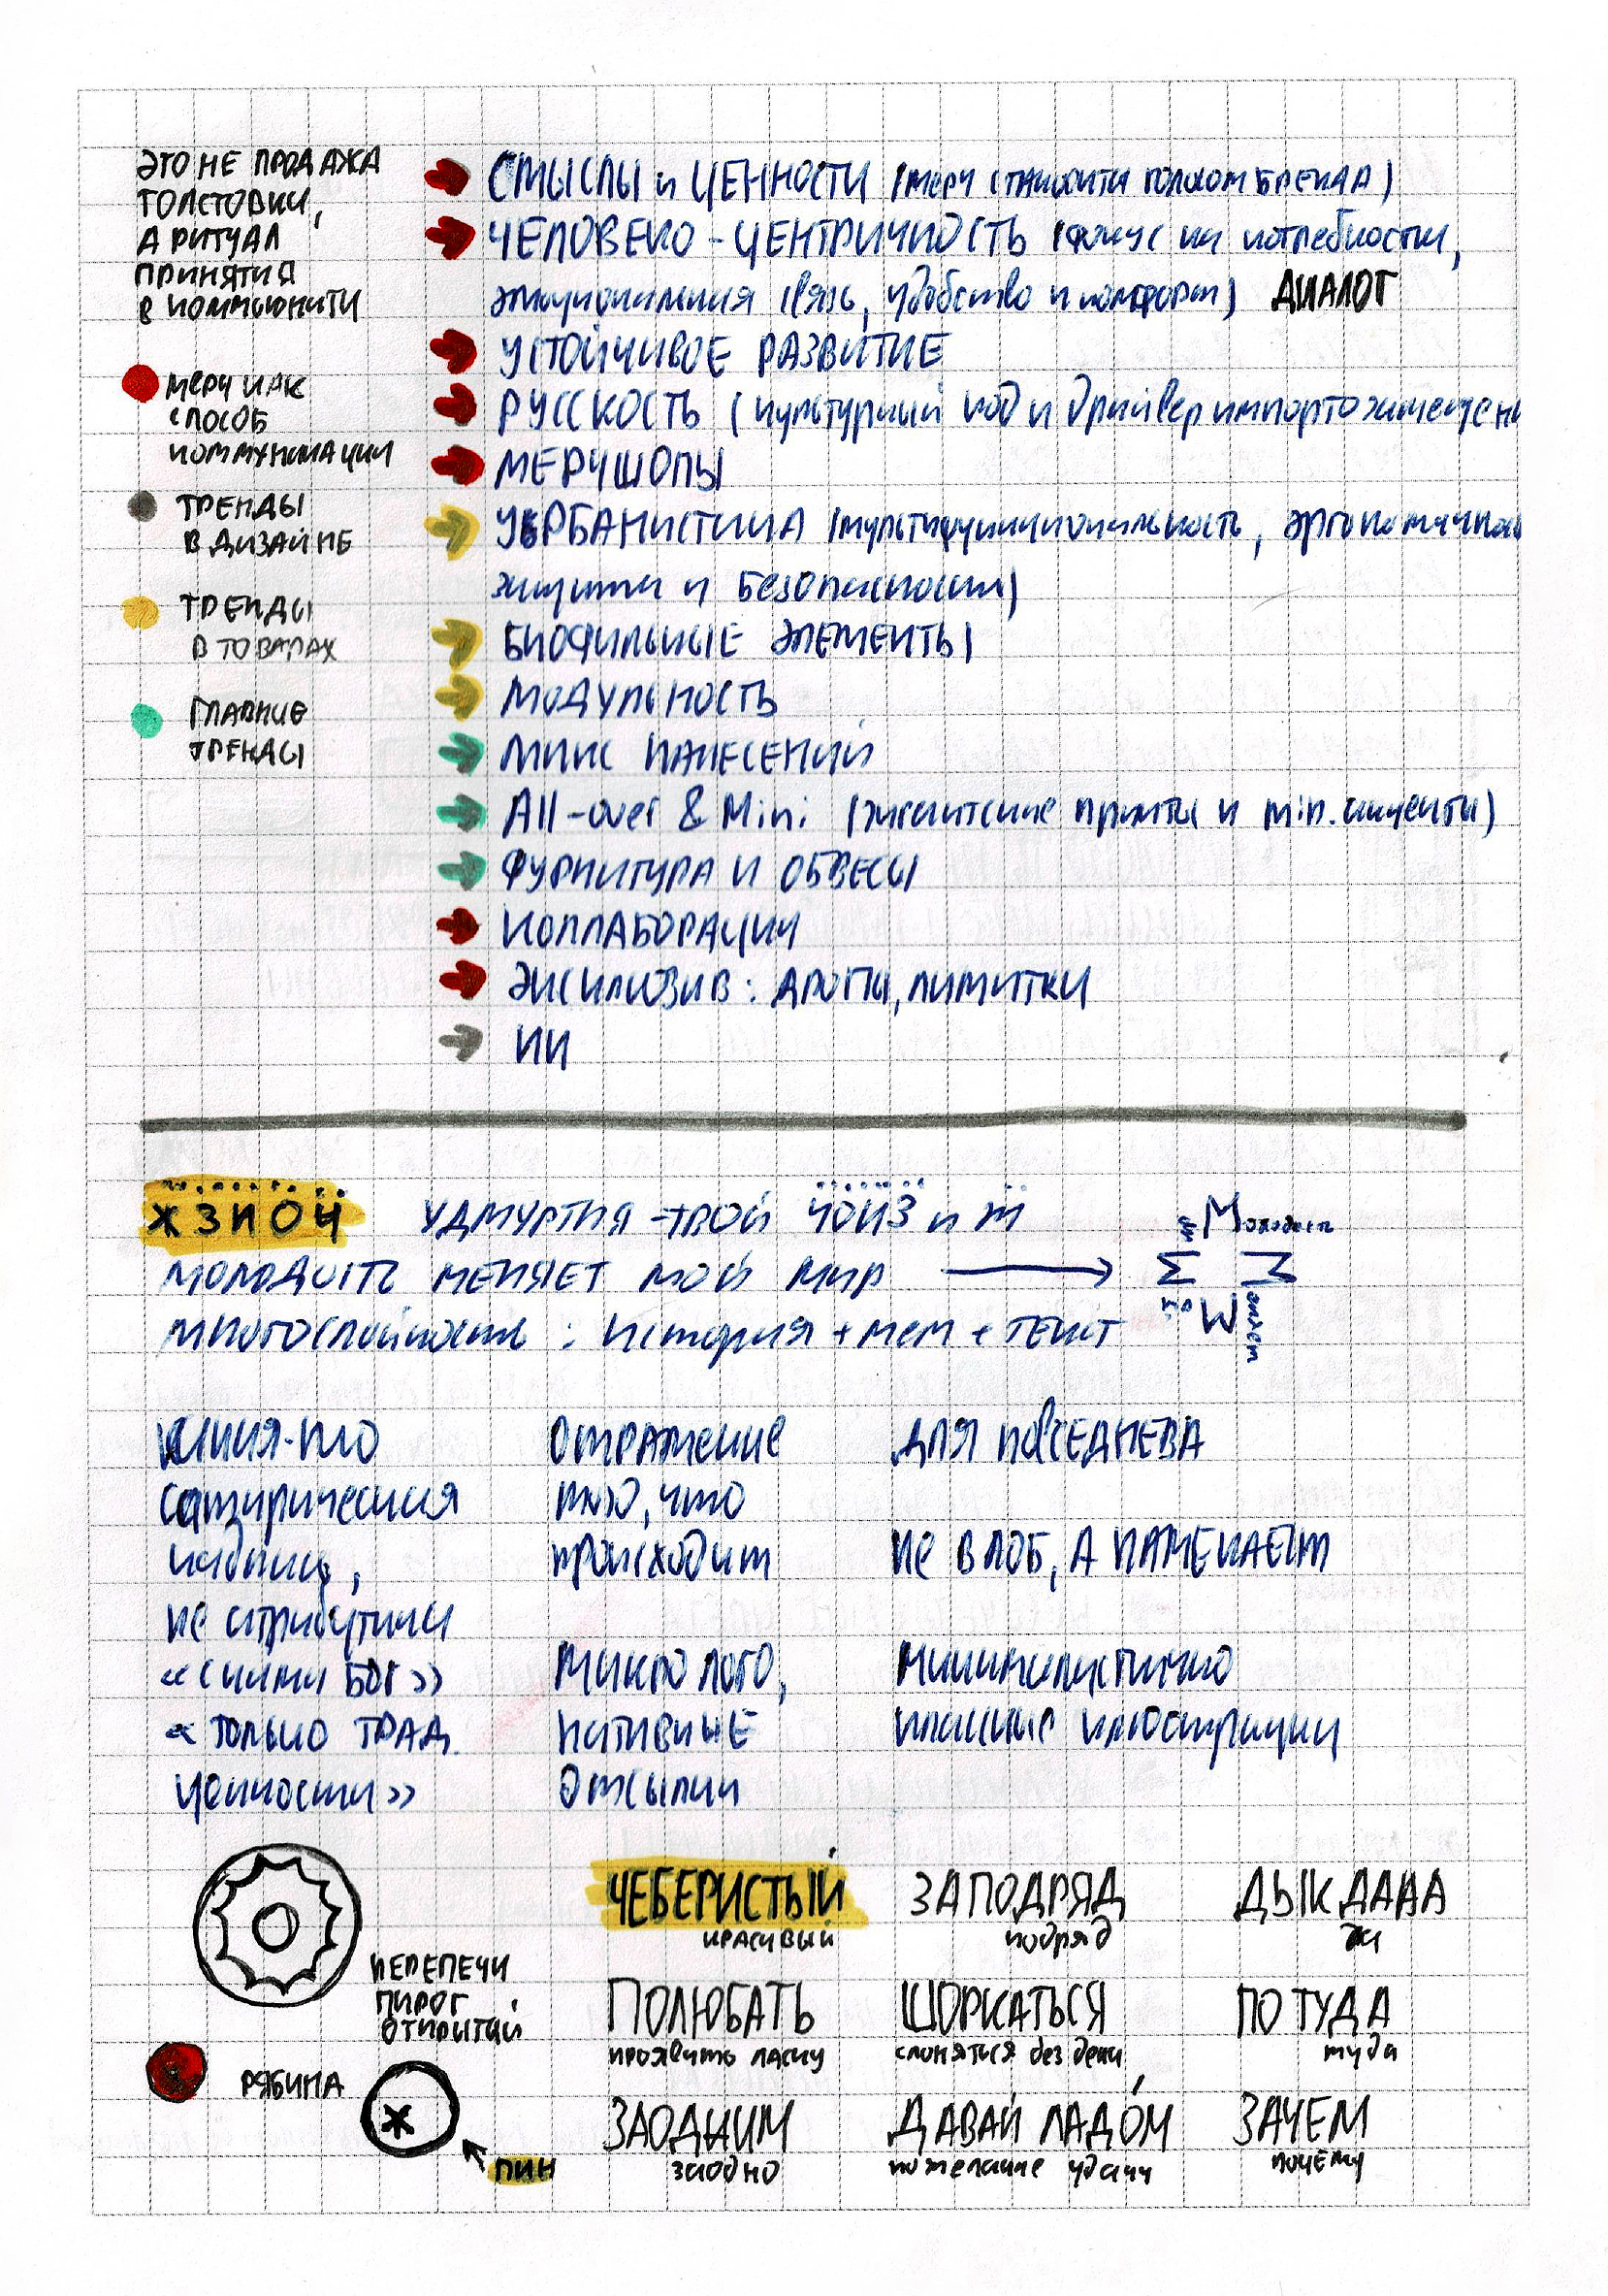 ЭТО НЕ ПРОДАЖА
ТОЛСТОВКИ,
А РИТУАЛ
ПРИНЯТИЯ
В КОММЬЮНИТИ
МЕРЧ КАК
СПОСОБ
КОММУНИКАЦИИ
ТРЕНДЫ
В ДИЗАЙНЕ
ТРЕНДЫ
В ТОВАРАХ
ГЛАВНЫЕ
ТРЕНДЫ
СМЫСЛЫ и ЦЕННОСТИ (мерч становится голосом БРЕНДА)
ЧЕЛОВЕКО-ЦЕНТРИЧНОСТЬ (фокус на потребности,
эмоциональная связь, удобство и комфорт) ДИАЛОГ
УСТОЙЧИВОЕ РАЗВИТИЕ
РУССКОСТЬ (культурный код и драйвер импортозамещени
МЕРЧШОПЫ
УРБАНИСТИКА (мультифункциональность, эргономичнос
защита и безопасность)
БИОФИЛЬНЫЕ ЭЛЕМЕНТЫ
МОДУЛЬНОСТЬ
МИКС НАНЕСЕНИЙ
All-over & Mini (гигантские принты и min. акценты)
ФУРНИТУРА И ОБВЕСЫ
КОЛЛАБОРАЦИИ
ЭКСКЛЮЗИВ: ДРОПЫ, ЛИМИТКИ
ИИ
ӜӞӤӦӴ УДМУРТИЯ - ТВОЙ ӴӦӤӞ и
МОЛОДОСТЬ МЕНЯЕТ МОЙ МИР
Молодость
меняет
МНОГОСЛОЙНОСТЬ: История + мем + ТЕКСТ
сатирическая
надпись,
не атрибутика
«с нами БОГ»
«ТОЛЬКО ТРАД.
ценности»
Отражение
того, что
происходит
МИКРО ЛОГО,
НАТИВНЫЕ
ОТСЫЛКИ
ДЛЯ ПОВСЕДНЕВА
НЕ В ЛОБ, А НАМЕКАЕТ
Минималистично
классные иллюстрации
ПЕРЕПЕЧИ
ПИРОГ
ОТКРЫТЫЙ
РЯБИНА
ПИН
ЧЕБЕРИСТЫЙ
красивый
ЗАПОДРЯД
подряд
ДЫК ДАНА
да
ПОЛЮБАТЬ
проявить ласку
ШОРКАТЬСЯ
слоняться без дела
ПО ТУДА
туда
ЗАОДНИМ
заодно
ДАВАЙ ЛАДО́М
пожелание удачи
ЗАЧЕМ
почему